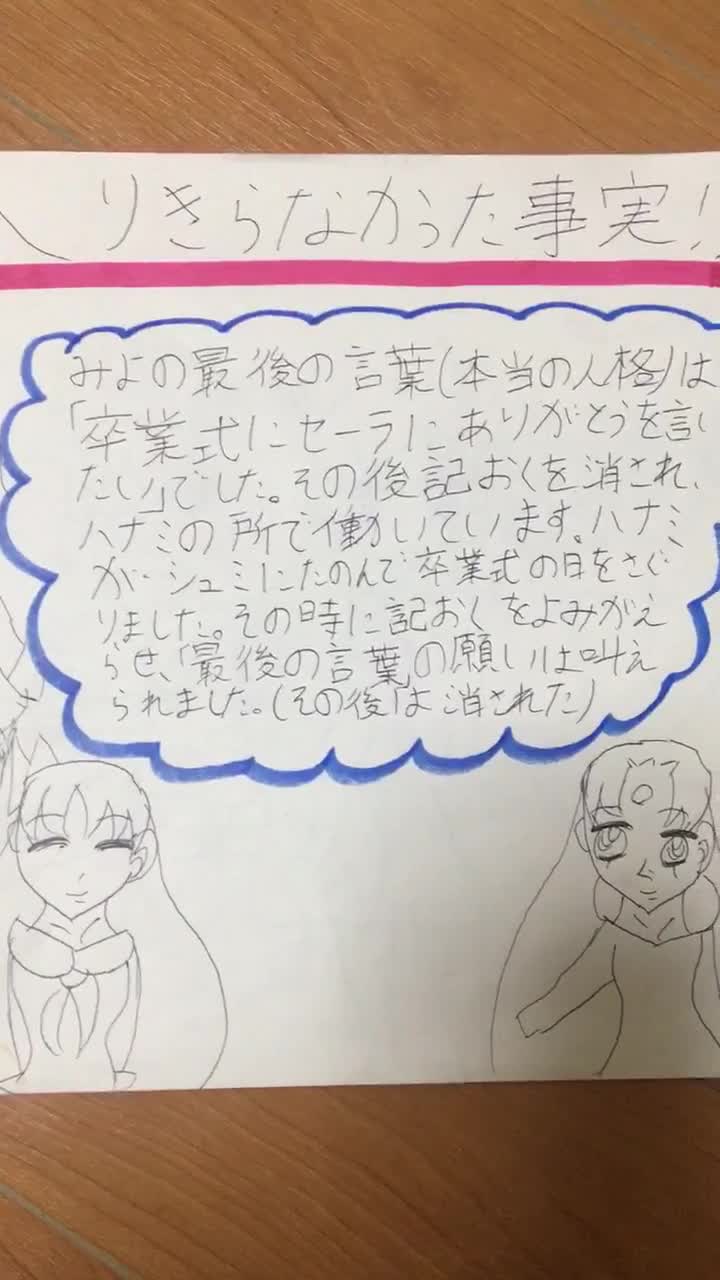 りきらなかった事実!
みよの最後の言葉(本当の人格)は
「卒業式にセーラにありがとうを言い
たい」でした。その後記おくを消され、
ハナミの所で働いています。ハナミ
が、シュミにたのんで卒業式の日をさぐ
りました。その時に記おくをよみがえ
らせ、「最後の言葉」の願いは叶え
られました。(その後は消された)